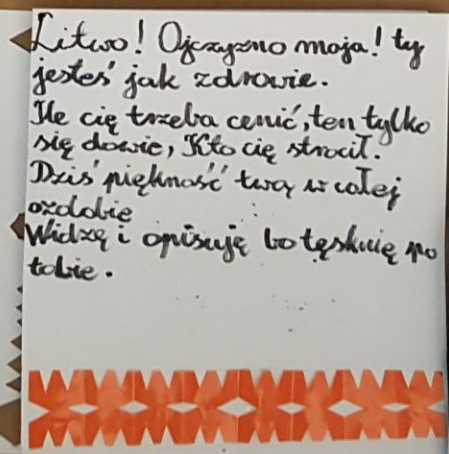 Litwo! Ojczyzno moja! ty
jesteś jak zdrowie.
Ile cię trzeba cenić, ten tylko
się dowie, Kto cię stracił.
Dziś piękność twą w całej
ozdobie
Widzę i opisuję bo tęsknię po
tobie.